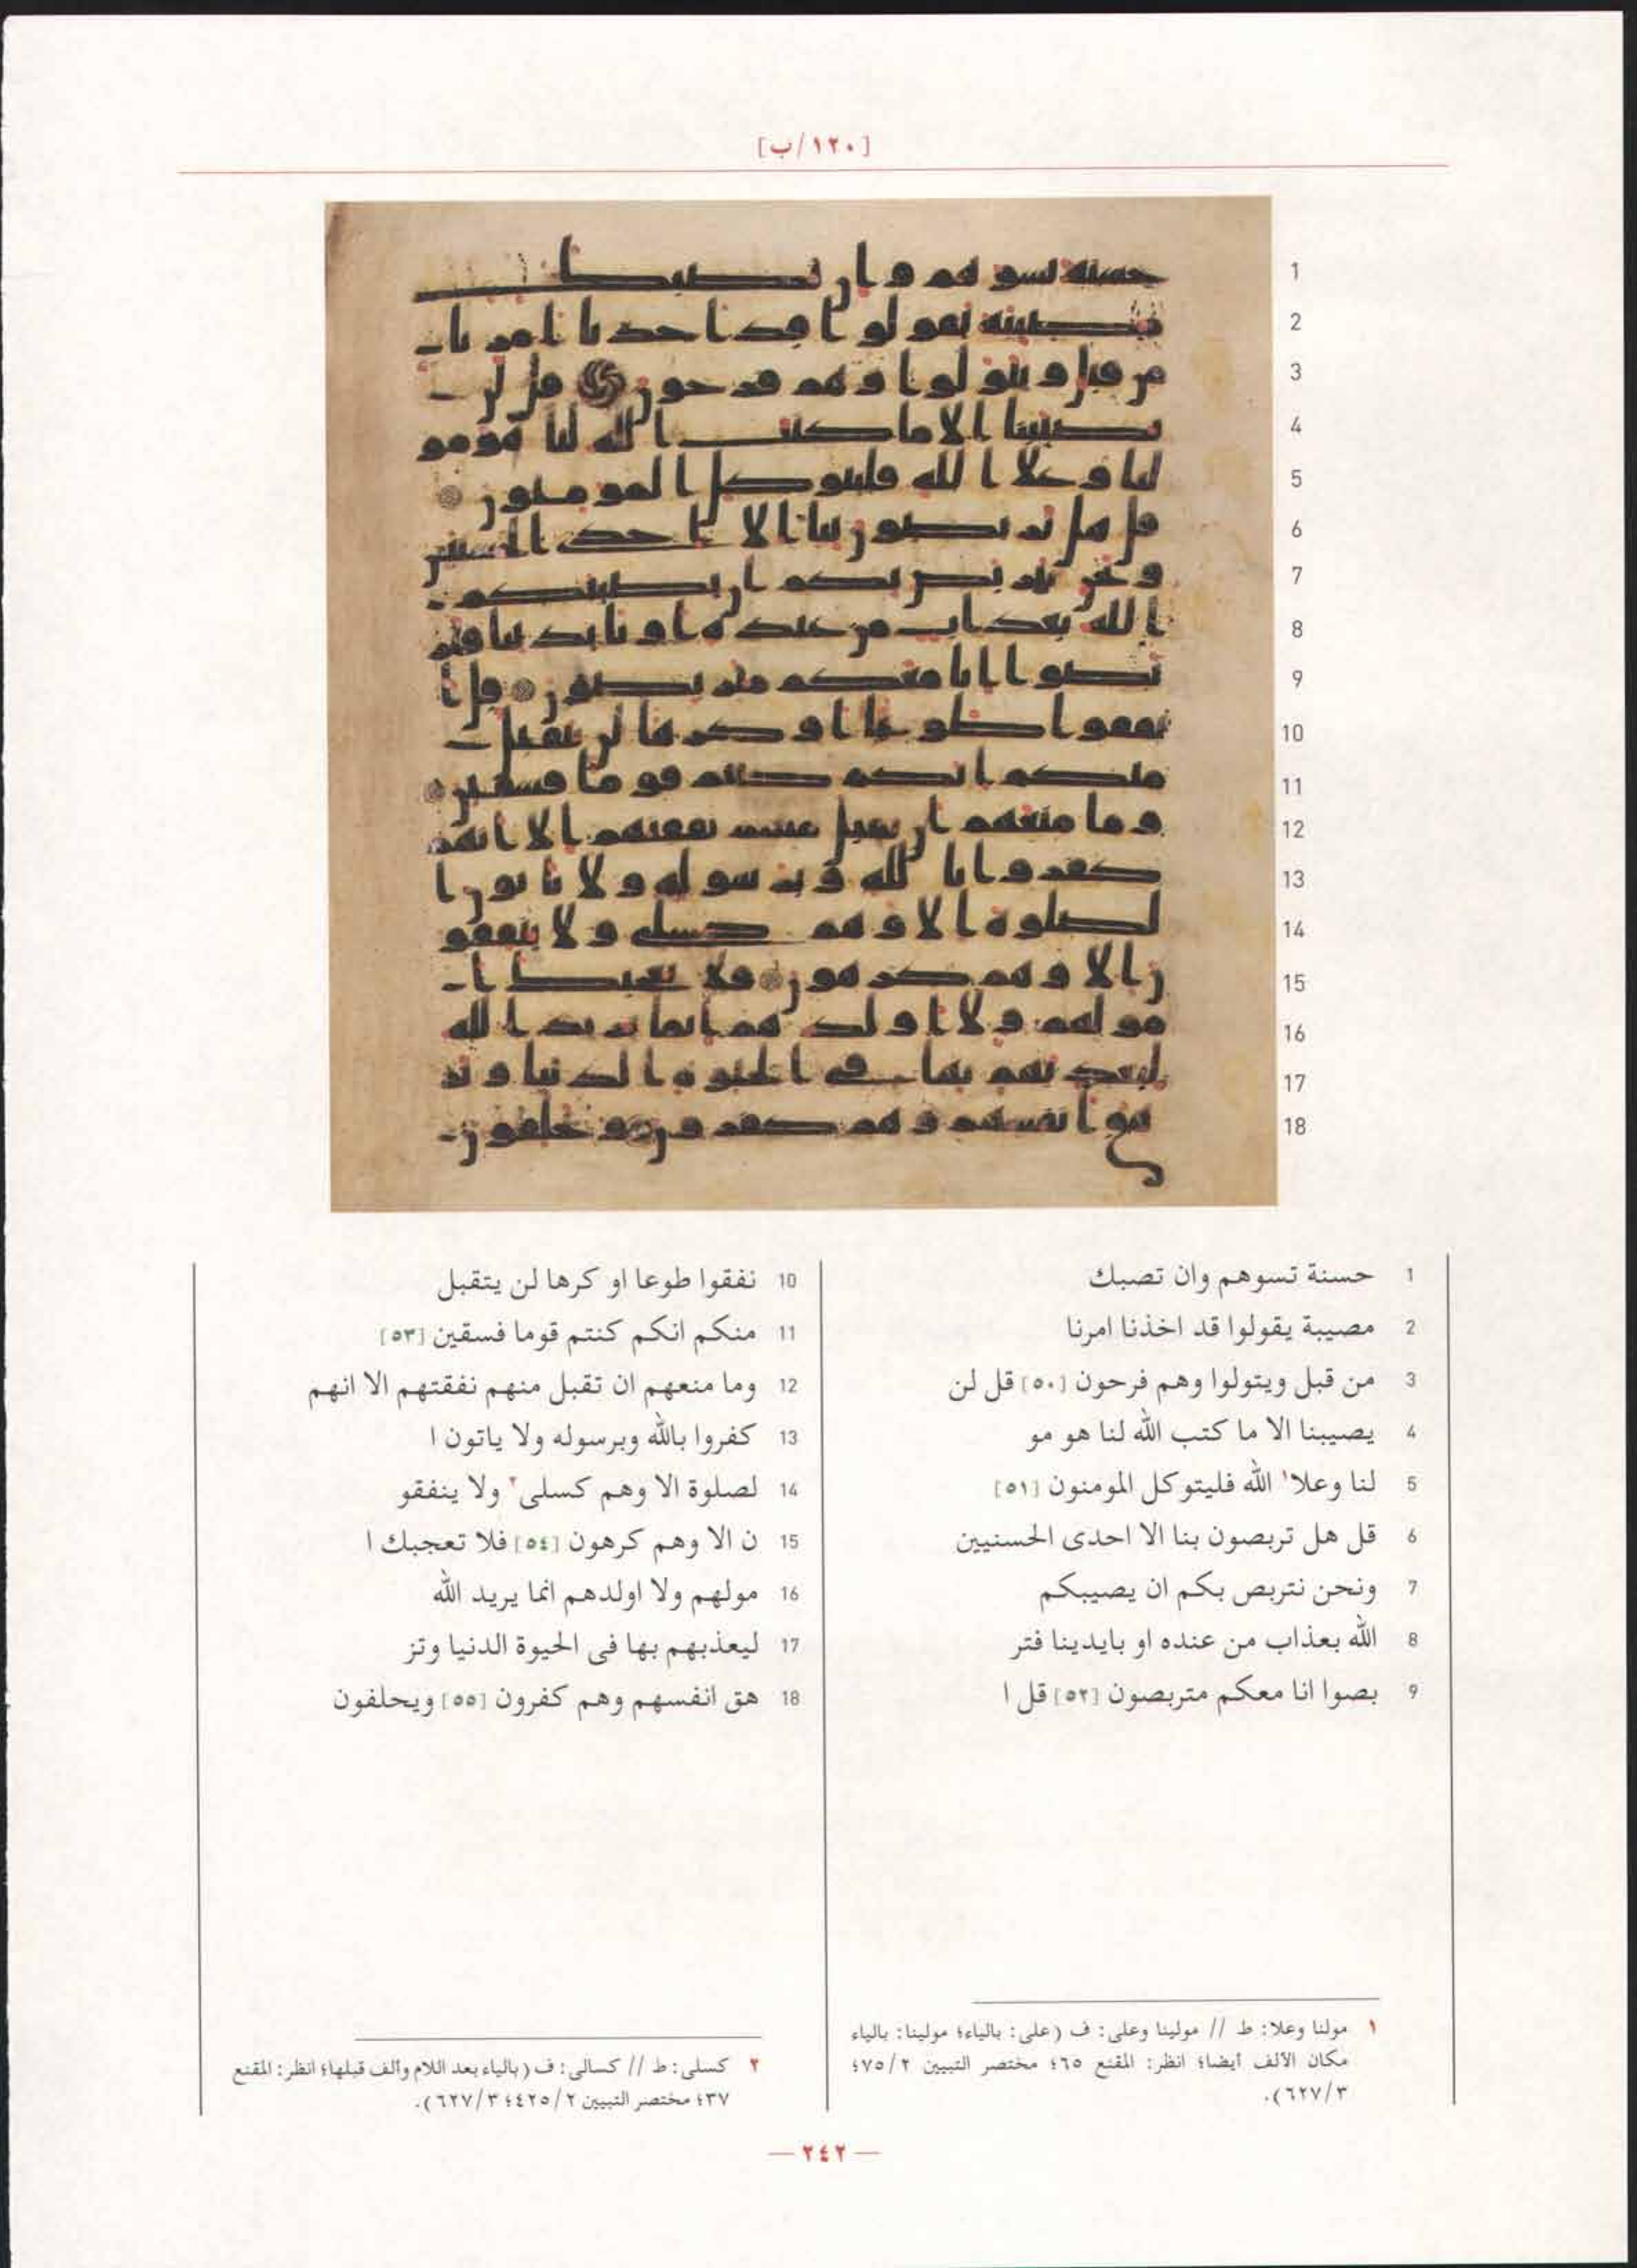 [١٢٠/ب]
1
2
3
4
5
6
7
8
9
10
11
12
13
14
15
16
17
18
1 حسنة تسوهم وان تصبك
2 مصيبة يقولوا قد اخذنا امرنا
3 من قبل ويتولوا وهم فرحون [٥٠] قل لن
4 يصيبنا الا ما كتب الله لنا هو مو
5 لنا وعلا١ الله فليتوكل المومنون [٥١]
6 قل هل تربصون بنا الا احدى الحسنيين
7 ونحن نتربص بكم ان يصيبكم
8 الله بعذاب من عنده او بايدينا فتر
9 بصوا انا معكم متربصون [٥٢] قل ا
10 نفقوا طوعا او كرها لن يتقبل
11 منكم انكم كنتم قوما فسقين [٥٣]
12 وما منعهم ان تقبل منهم نفقتهم الا انهم
13 كفروا بالله وبرسوله ولا ياتون ا
14 لصلوة الا وهم كسلى٢ ولا ينفقو
15 ن الا وهم كرهون [٥٤] فلا تعجبك ا
16 مولهم ولا اولدهم انما يريد الله
17 ليعذبهم بها فى الحيوة الدنيا وتز
18 هق انفسهم وهم كفرون [٥٥] ويحلفون
١ مولنا وعلا: ط // مولينا وعلى: ف (على: بالياء؛ مولينا: بالياء
مكان الألف أيضا؛ انظر: المقنع ٦٥؛ مختصر التبيين ٧٥/٢؛
٦٢٧/٣).
٢ كسلى: ط // كسالى: ف (بالياء بعد اللام وألف قبلها؛ انظر: المقنع
٣٧؛ مختصر التبيين ٤٢٥/٢؛ ٦٢٧/٣).
— ٢٤٢ —